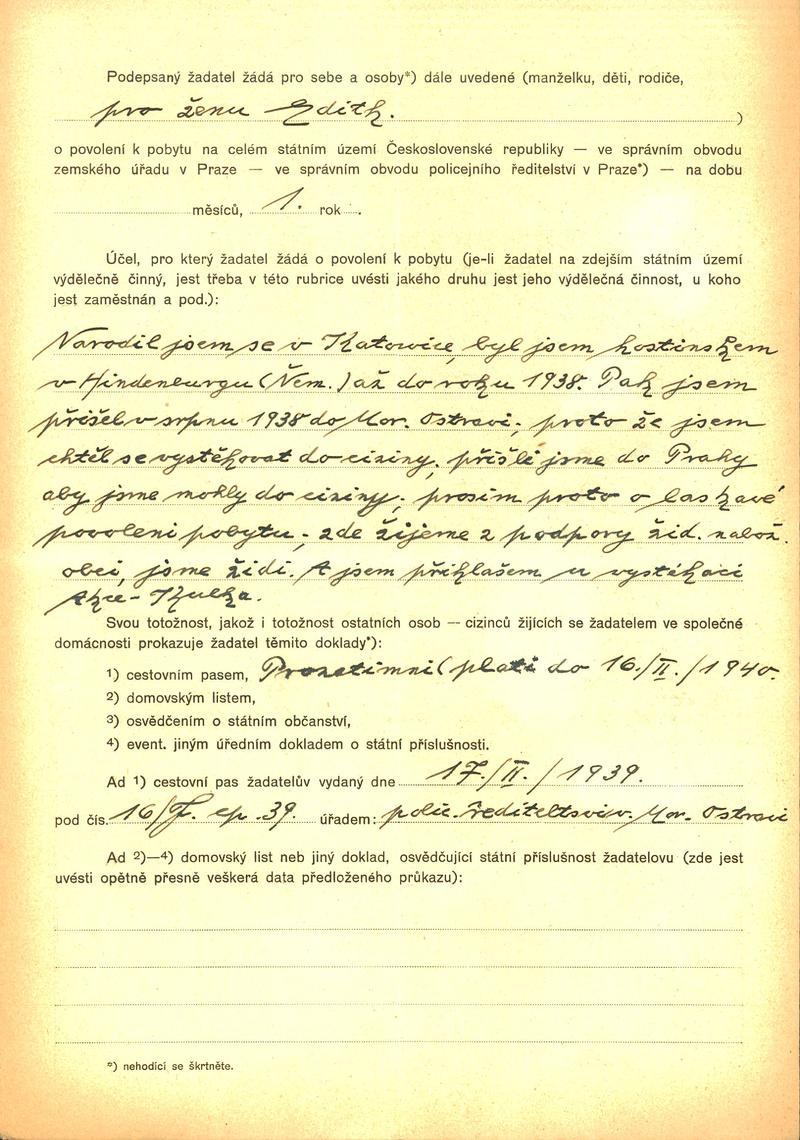 Podepsaný žadatel žádá pro sebe a osoby*) dále uvedené (manželku, děti, rodiče,
pro ženu Edith. )
o povolení k pobytu na celém státním území Československé republiky — ve správním obvodu
zemského úřadu v Praze — ve správním obvodu policejního ředitelství v Praze*) — na dobu
měsíců, 1. rok .
Účel, pro který žadatel žádá o povolení k pobytu (je-li žadatel na zdejším státním území
výdělečně činný, jest třeba v této rubrice uvésti jakého druhu jest jeho výdělečná činnost, u koho
jest zaměstnán a pod.):
Narodil jsem se v Katowice, byl jsem hostinskem
v Hindenburgu (Něm.) až do roku 1938. Pak jsem
přišel v srpnu 1938 do Mor. Ostravi, proto že jsem
chtěl se vystěkovat do ciziny, přišli jsme do Prahy
aby jsme mohly do ciziny, prosim proto o laskavé
povoleni pobytu, zde žijeme z podpory žid. nabož.
obci, jsme židi. A jsem přihlašem u vystěhaci
Akce-
Svou totožnost, jakož i totožnost ostatních osob — cizinců žijících se žadatelem ve společné
domácnosti prokazuje žadatel těmito doklady*):
1) cestovním pasem, Prozatimni (plati do 16./II./1940.
2) domovským listem,
3) osvědčením o státním občanství,
4) event. jiným úředním dokladem o státní příslušnosti.
Ad 1) cestovní pas žadatelův vydaný dne 17./II./1939.
pod čís. 16/ 39. úřadem: polic. řediteltsvi v. Mor. Ostravi
Ad 2)—4) domovský list neb jiný doklad, osvědčující státní příslušnost žadatelovu (zde jest
uvésti opětně přesně veškerá data předloženého průkazu):
*) nehodící se škrtněte.